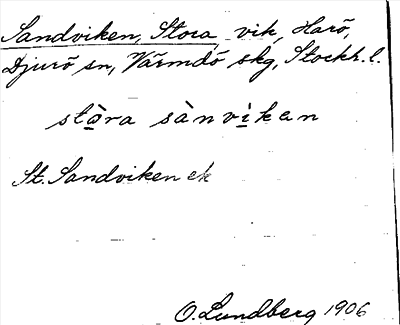 Sandviken, Stora, vik, Harö,
Djurö sn, Värmdö skg, Stockh. l.
stòra sànvìkan
St. Sandviken ek
O. Lundberg 1906